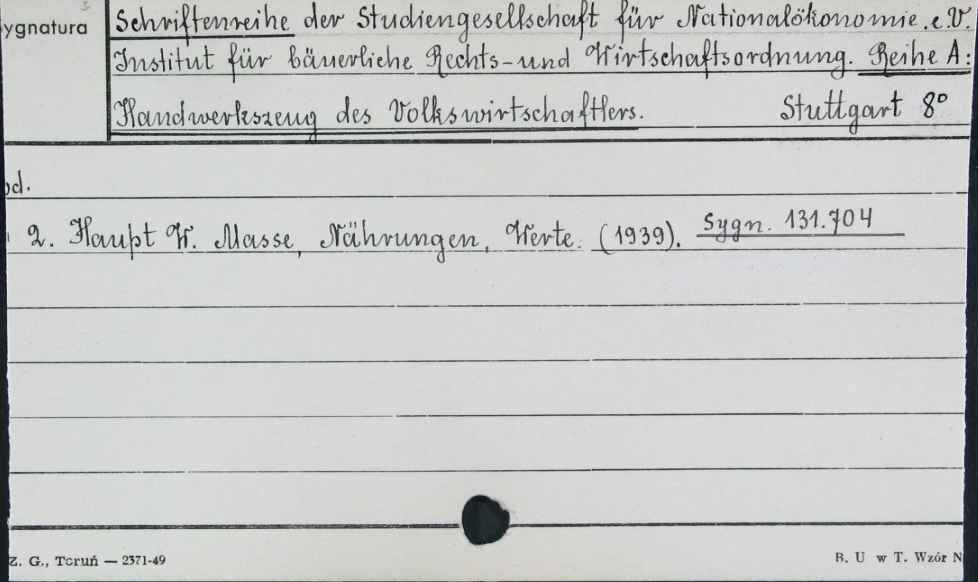 ygnatura
Schriftenreihe der Studiengesellschaft für Nationalökonomie.e.V.
Institut für bäuerliche Rechts-und Wirtschaftsordnung. Reihe A:
Handwerkszeug des Volkswirtschaftlers. Stuttgart 8°
od.
2. Haupt W. Masse, Nährungen, Werte. (1939). Sygn. 131.704
Z. G., Toruń — 2371-49
B. U w T. Wzór N